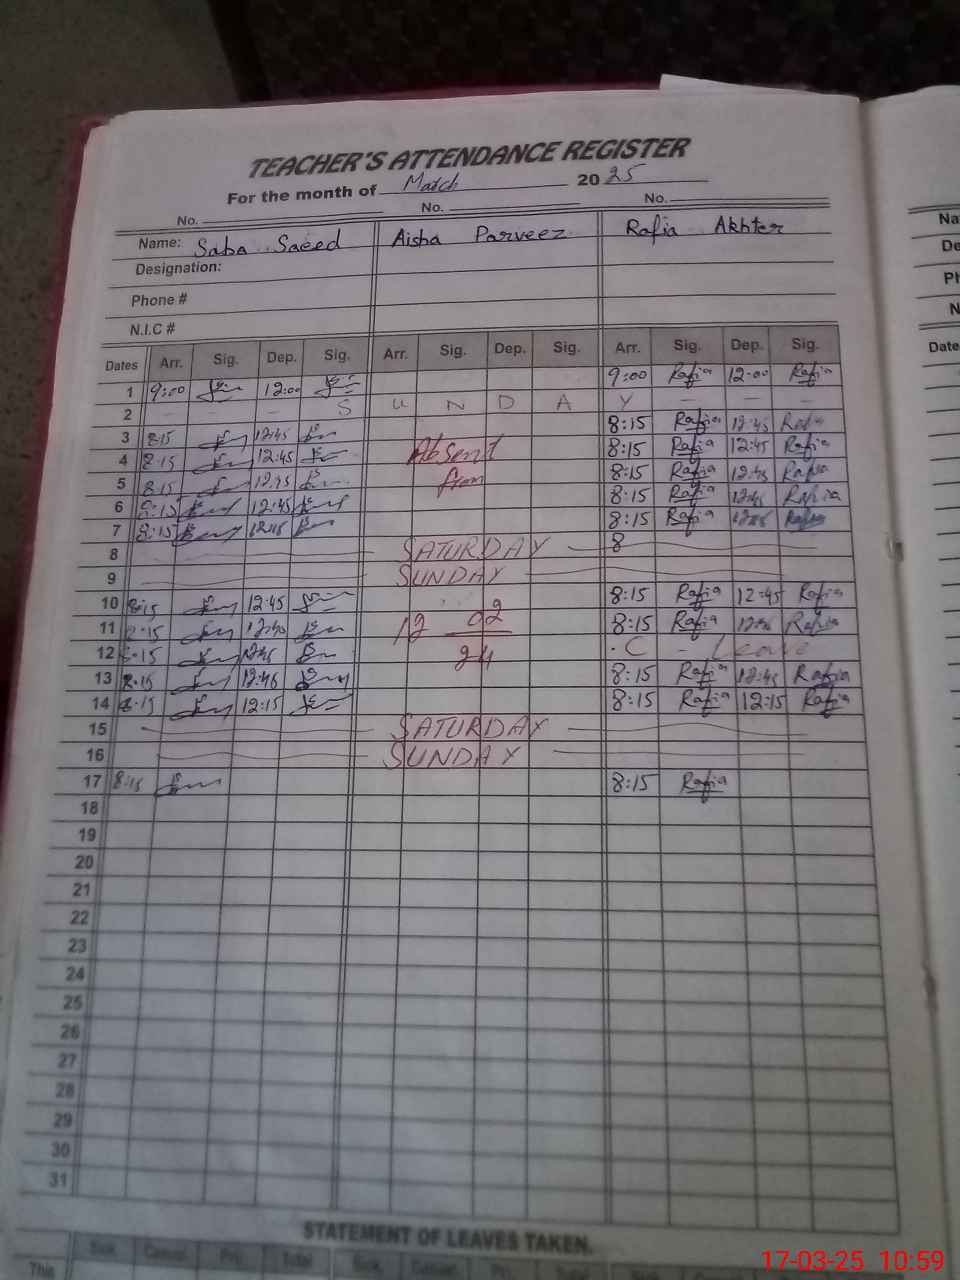 TEACHER'S ATTENDANCE REGISTER
For the month of March 2025
No. No. No.
Name: Saba Saeed Aisha Parveez Rafia Akhter
Designation:
Phone #
N.I.C #
Dates Arr. Sig. Dep. Sig. Arr. Sig. Dep. Sig. Arr. Sig. Dep. Sig.
1 9:00 12:00 9:00 Rafia 12:00 Rafia
2 - - - S U N D A Y - - -
3 8:15 12:45 8:15 Rafia 12:45 Rafia
4 8:15 12:45 Absent 8:15 Rafia 12:45 Rafia
5 8:15 12:45 from 8:15 Rafia 12:45 Rafia
6 8:15 12:45 8:15 Rafia 12:45 Rafia
7 8:15 8:15 Rafia Rafia
8 SATURDAY 8
9 SUNDAY
10 8:15 12:45 8:15 Rafia 12:45 Rafia
11 8:15 12:45 12 02 8:15 Rafia 12:45 Rafia
12 8:15 12:45 24 C - Leave
13 8:15 12:45 8:15 Rafia 12:45 Rafia
14 8:15 12:15 8:15 Rafia 12:15 Rafia
15 SATURDAY
16 SUNDAY
17 8:15 8:15 Rafia
18
19
20
21
22
23
24
25
26
27
28
29
30
31
STATEMENT OF LEAVES TAKEN.
This
Na
De
Ph
N.
Date
17-03-25 10:59